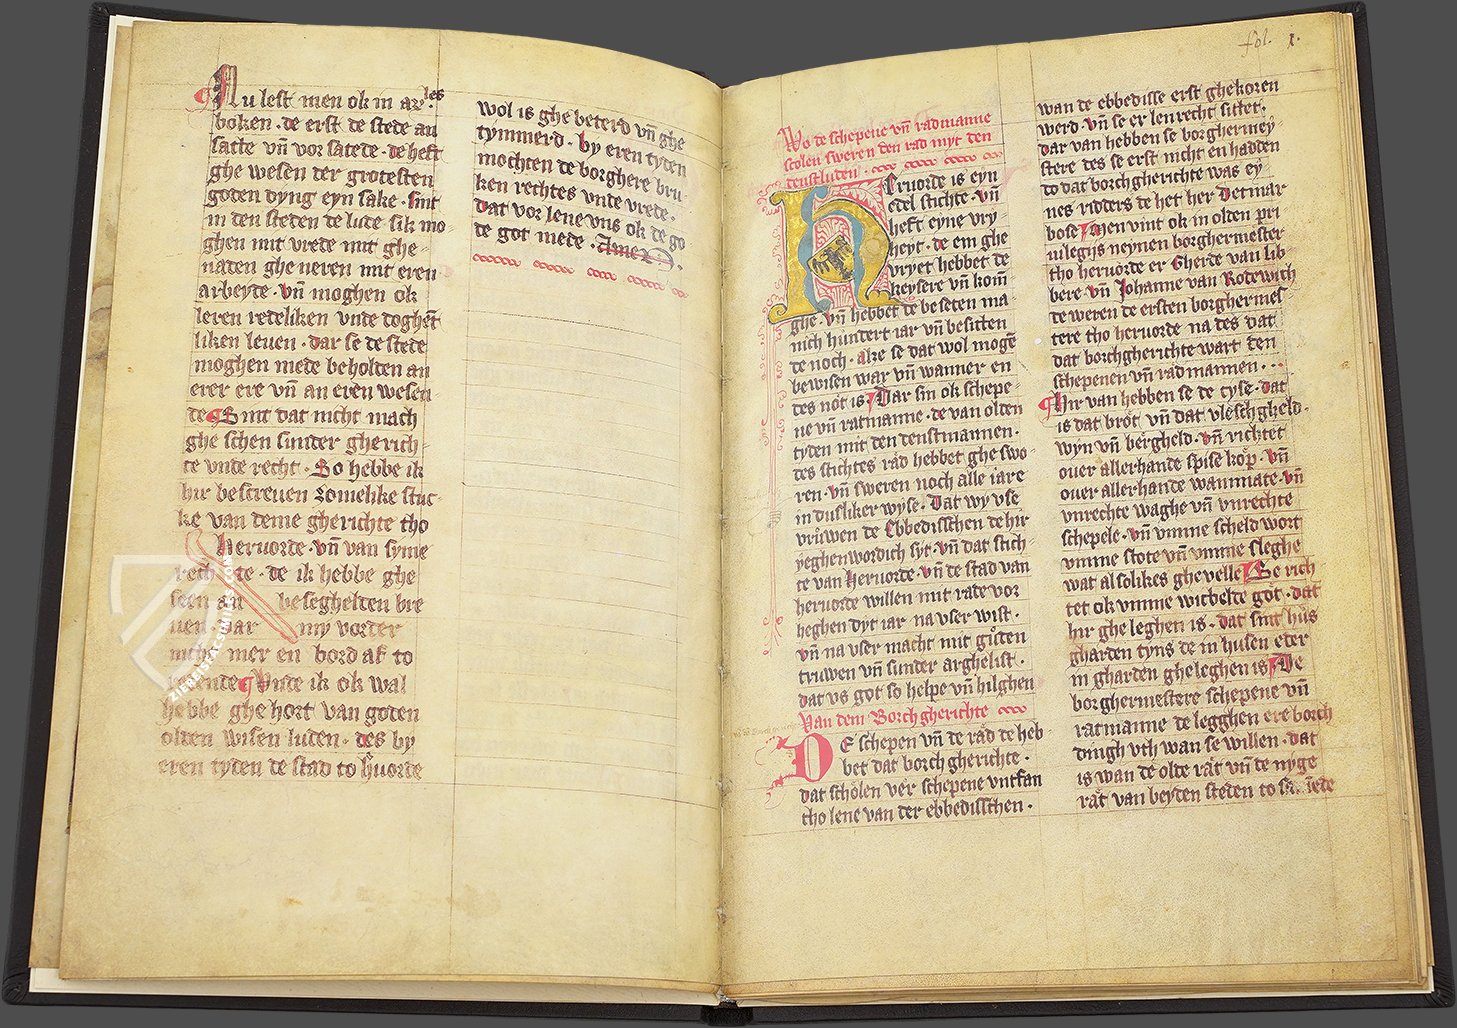 Nu lest men ok in ar les
boken · de erst de stede an
satte vn̄ vor satede · de heft
ghe wesen der grotesten
goten dyng eyn sake · sint
in den steden de lude sik mo
ghen mit vrede mit ghe
naden ghe neren mit eren
arbeyde · vn̄ moghen ok
leren redeliken vnde doghet
liken leuen · dar se de stede
moghen mede beholden an
erer ere vn̄ an eren wesen
de Sint dat nicht mach
ghe schen sunder gherich
te vnde recht · So hebbe ik
hir bescreuen zomelike stuc
ke van deme gherichte tho
heruorde · vn̄ van syme
rechte · de ik hebbe ghe
seen an beseghelden bre
uen · dar my vorder
nicht mer en bord af to
redende Vnde ik ok wal
hebbe ghe hort van goten
olden wisen luden · des by
eren tyden de stad to h̄uorde
wol is ghe beterd vn̄ ghe
tymmerd · by eren tyden
mochten de borghere bru
ken rechtes vnde vrede ·
dat vor lene vns ok de go
de got mede · Amen ·
fol. 1.
Wo de schepene vn̄ radmanne
scolen sweren den rad myt den
denstluden ·
Heruorde is eyn
edel stichte · vn̄
heft eyne vry
heyt · de em ghe
vryet hebbet de
keysere vn̄ konī
ghe · vn̄ hebbet de beseten ma
nich hundert iar vn̄ besitten
de noch · alze se dat wol mogē
bewisen war vn̄ wanner en
des not is · Dar sin ok schepe
ne vn̄ ratmanne · de van olden
tyden mit den denstmannen ·
des stichtes råd hebbet ghe swo
ren · vn̄ sweren noch alle iare
in dusliker wyse · Dat wy vse
vrůwen de Ebbedisschen de hir
yeghenwordich syt · vn̄ dat stich
te van heruorde · vn̄ de stad van
heruorde willen mit rade vor
heghen dyt iar na vser wist ·
vn̄ na vser macht mit gůden
truwen vn̄ sunder arghelist ·
dat vs got so helpe vn̄ hilghen
Van dem Borchgherichte
DE schepen vn̄ de råd de heb
bet dat borch gherichte ·
dat schölen ver schepene vntfan
tho lene van der ebbedisschen ·
wan de ebbedisse erst ghekoren
werd · vn̄ se er lenrecht sittet ·
dar van hebben se borghermey
stere des se erst nicht en hadden
do dat borchgherichte was ey
nes ridders de het her Detmar
bose Men vint ok in olden pri
uilegijs neynen borghermester
tho heruorde er Gherde van lib
bere · vn̄ Johanne van Rodewich
de weren de ersten borghermes
tere tho heruorde na des dat
dat borchgherichte wart den
schepenen vn̄ radmannen · · ·
Hir van hebben se de cyse · dat
is dat bröt vn̄ dat vlesch gheld ·
wyn vn̄ bērgheld · vn̄ richtet
ouer allerhande spise kop · vn̄
ouer allerhande wanmate · vn̄
vnrechte waghe vn̄ vnrechte
schepele · vn̄ vmme scheld wort
vmme stote vn̄ vmme sleghe
wat alsolikes ghe velle Se rich
tet ok vmme wicbelde göt · dat
hir ghe leghen is · dat sint hůs
gharden tyns de in husen eder
in gharden gheleghen is De
borghermestere schepene vn̄
ratmanne de legghen ere borch
dingh vth wan se willen · dat
is wan de olde rät vn̄ de nyge
rät van beyden steden to